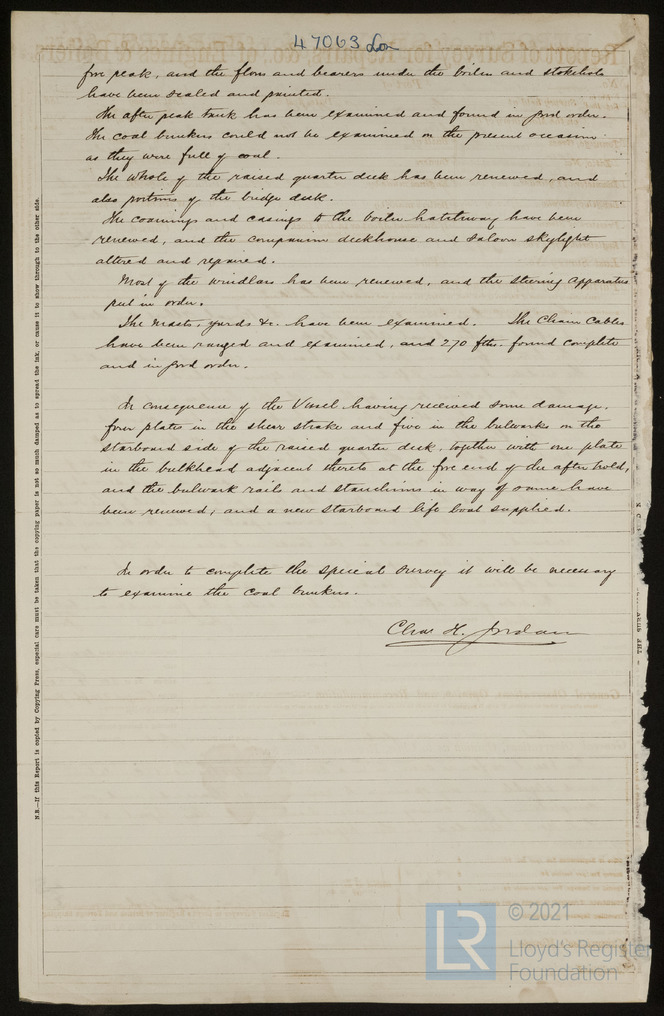 47063 Lon
fore peak, and the floors and bearers under the boilers and stokehole
have been scaled and painted.
The after peak tank has been examined and found in good order.
The coal bunkers could not be examined on the present occasion
as they were full of coal.
The whole of the raised quarter deck has been renewed, and
also portions of the bridge deck.
The coamings and casings to the boiler hatchway have been
renewed, and the companion deckhouse and saloon skylight
altered and repaired.
Most of the windlass has been renewed, and the steering apparatus
put in order.
The masts, yards &c. have been examined. The Chain Cables
have been ranged and examined, and 270 fths. found complete
and in good order.
In consequence of the Vessel having received some damage,
four plates in the shear strake and five in the bulwarks on the
starboard side of the raised quarter deck, together with one plate
in the bulkhead adjacent thereto at the fore end of the after hold,
and the bulwark rails and stanchions in way of same have
been renewed, and a new starboard life boat supplied.
In order to complete the special survey it will be necessary
to examine the coal bunkers.
Chas H. Jordan
N.B.—If this Report is copied by Copying Press, especial care must be taken that the copying paper is not so much damped as to spread the ink, or cause it to show through to the other side.
LR
© 2021
Lloyd's Register
Foundation